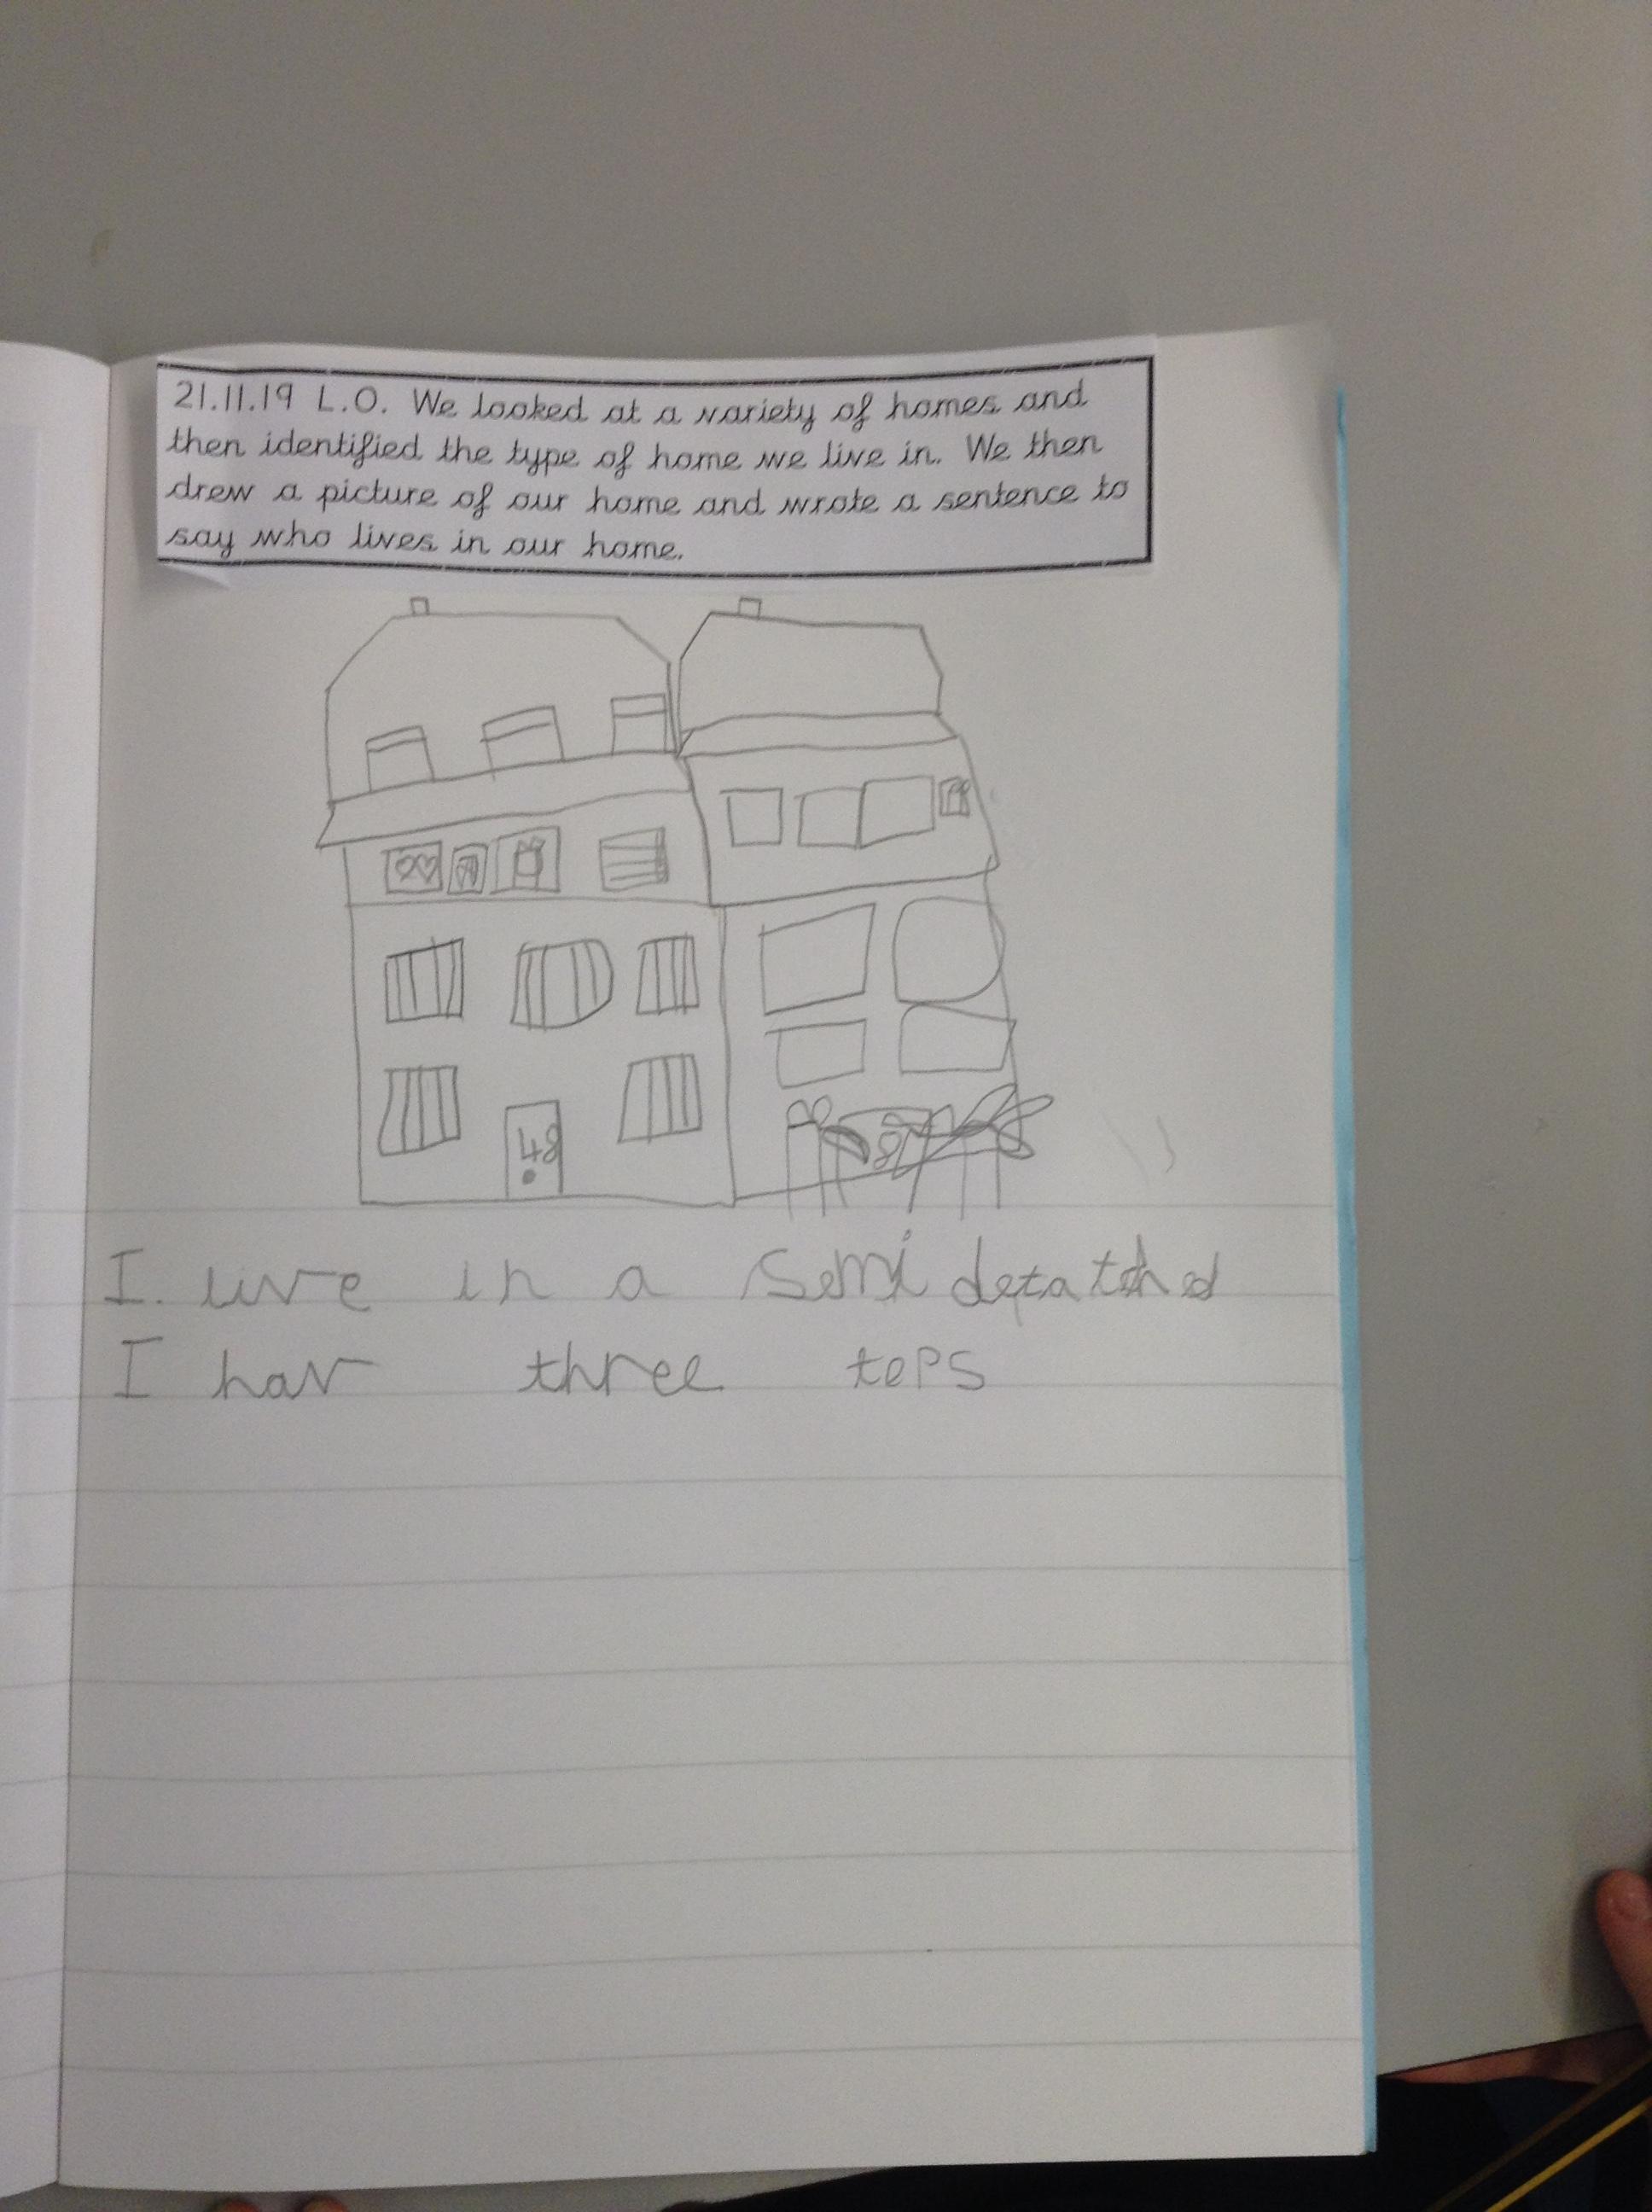 21.11.19 L.O. We looked at a variety of homes and
then identified the type of home we live in. We then
drew a picture of our home and wrote a sentence to
say who lives in our home.
48
I. live in a Semi detatched
I hav three teps